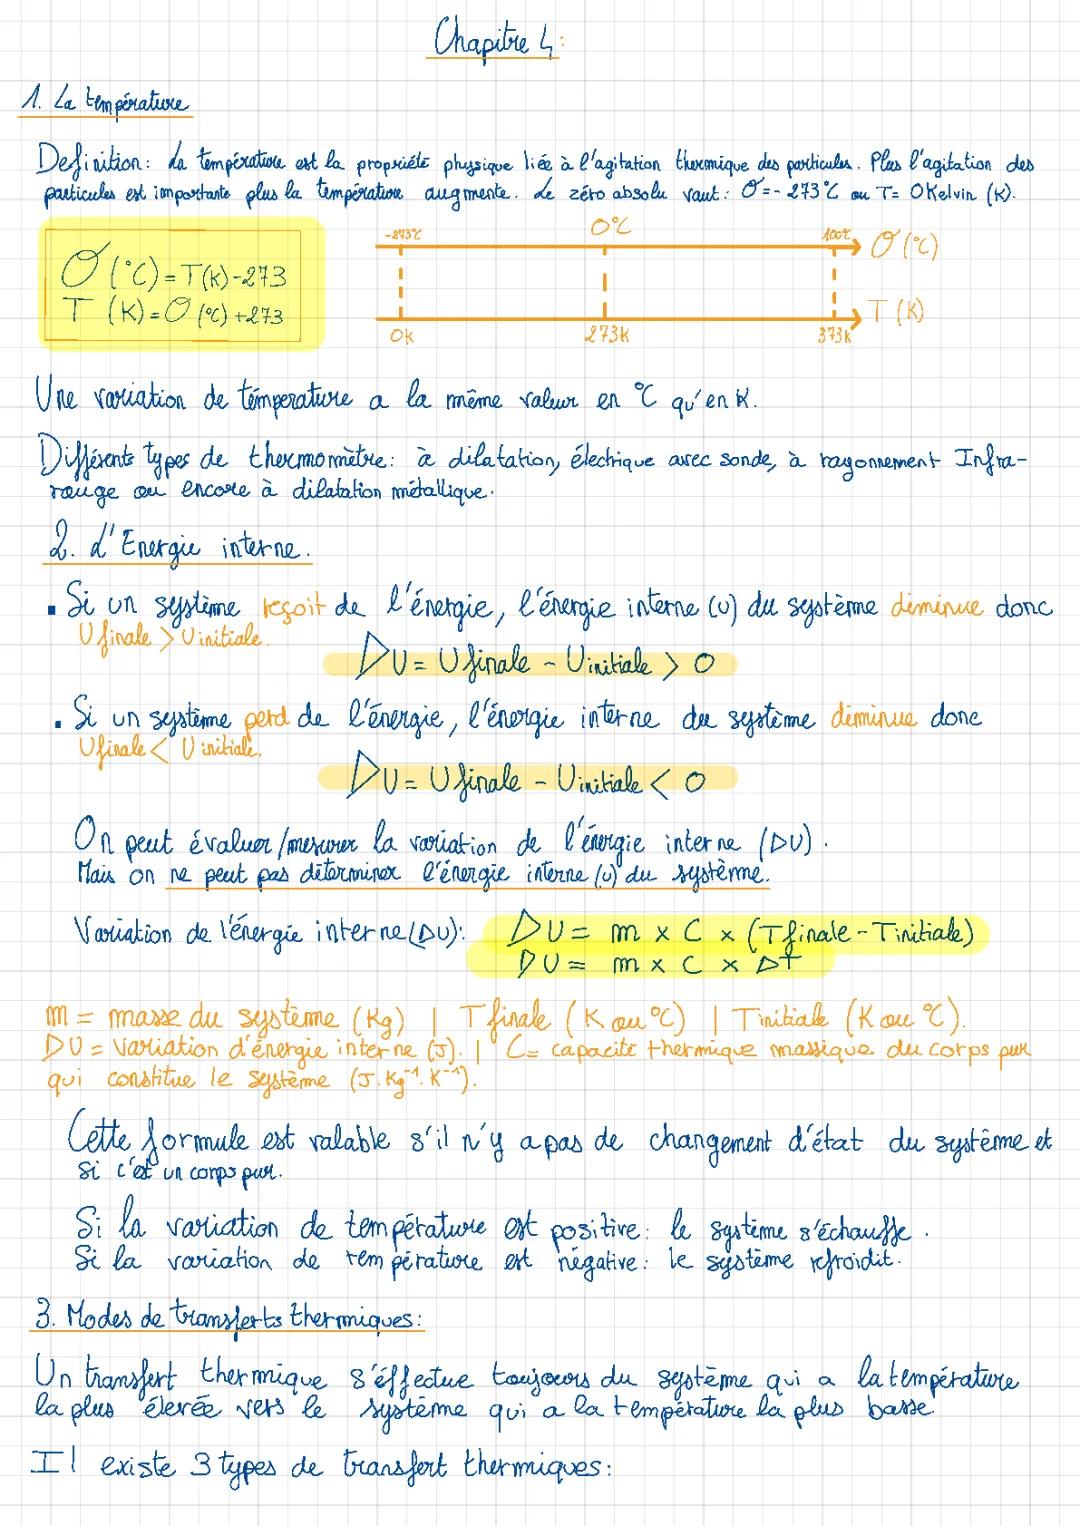 Chapitre 4:
1. La température
Definition: La température est la propriété physique liée à l'agitation thermique des particules. Plus l'agitation des
particules est importante plus la température augmente. Le zéro absolu vaut: Θ=-273°C ou T= 0Kelvin (K).
-273°C 0°C 100°C Θ(°C)
Θ(°C)=T(K)-273
T (K)=Θ(°C)+273
0K 273K 373K T(K)
Une variation de température a la même valeur en °C qu'en K.
Différents types de thermomètre: à dilatation, électrique avec sonde, à rayonnement Infra-
rouge ou encore à dilatation métallique.
2. L'Energie interne.
▪ Si un système reçoit de l'énergie, l'énergie interne (U) du système diminue donc
U finale > U initiale.
ΔU = U finale - U initiale > 0
▪ Si un système perd de l'énergie, l'énergie interne du système diminue donc
U finale < U initiale.
ΔU = U finale - U initiale < 0
On peut évaluer/mesurer la variation de l'énergie interne (ΔU).
Mais on ne peut pas déterminer l'énergie interne (U) du système.
Variation de l'énergie interne(ΔU): ΔU = m x C x (Tfinale - Tinitiale)
ΔU = m x C x ΔT
m = masse du système (Kg) | T finale (K ou °C) | Tinitiale (K ou °C).
ΔU = Variation d'énergie interne (J). | C = capacité thermique massique du corps pur
qui constitue le système (J.Kg⁻¹.K⁻¹).
Cette formule est valable s'il n'y a pas de changement d'état du système et
si c'est un corps pur.
Si la variation de température est positive: le système s'échauffe.
Si la variation de température est négative: le système refroidit.
3. Modes de transferts thermiques:
Un transfert thermique s'éffectue toujours du système qui a la température
la plus élevée vers le système qui a la température la plus basse.
Il existe 3 types de transfert thermiques: